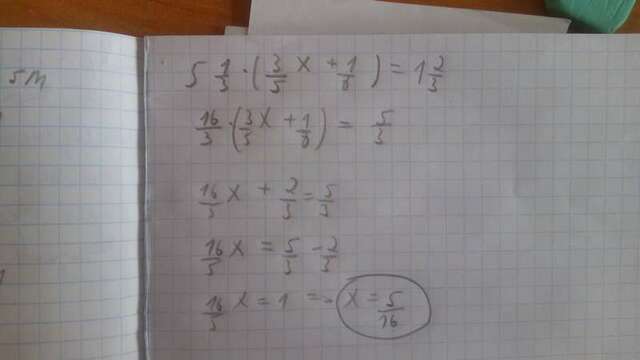 5M
5 1/3 · (3/5 x + 1/8) = 1 2/3
16/3 · (3/5 x + 1/8) = 5/3
16/5 x + 2/3 = 5/3
16/5 x = 5/3 - 2/3
16/5 x = 1 => x = 5/16